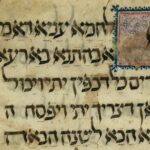 לחמא עניא
אבהתנא בארעא
כל דכפין יתי ויכול
דצריך יתי ויפסח
הכא לשנה הבאה